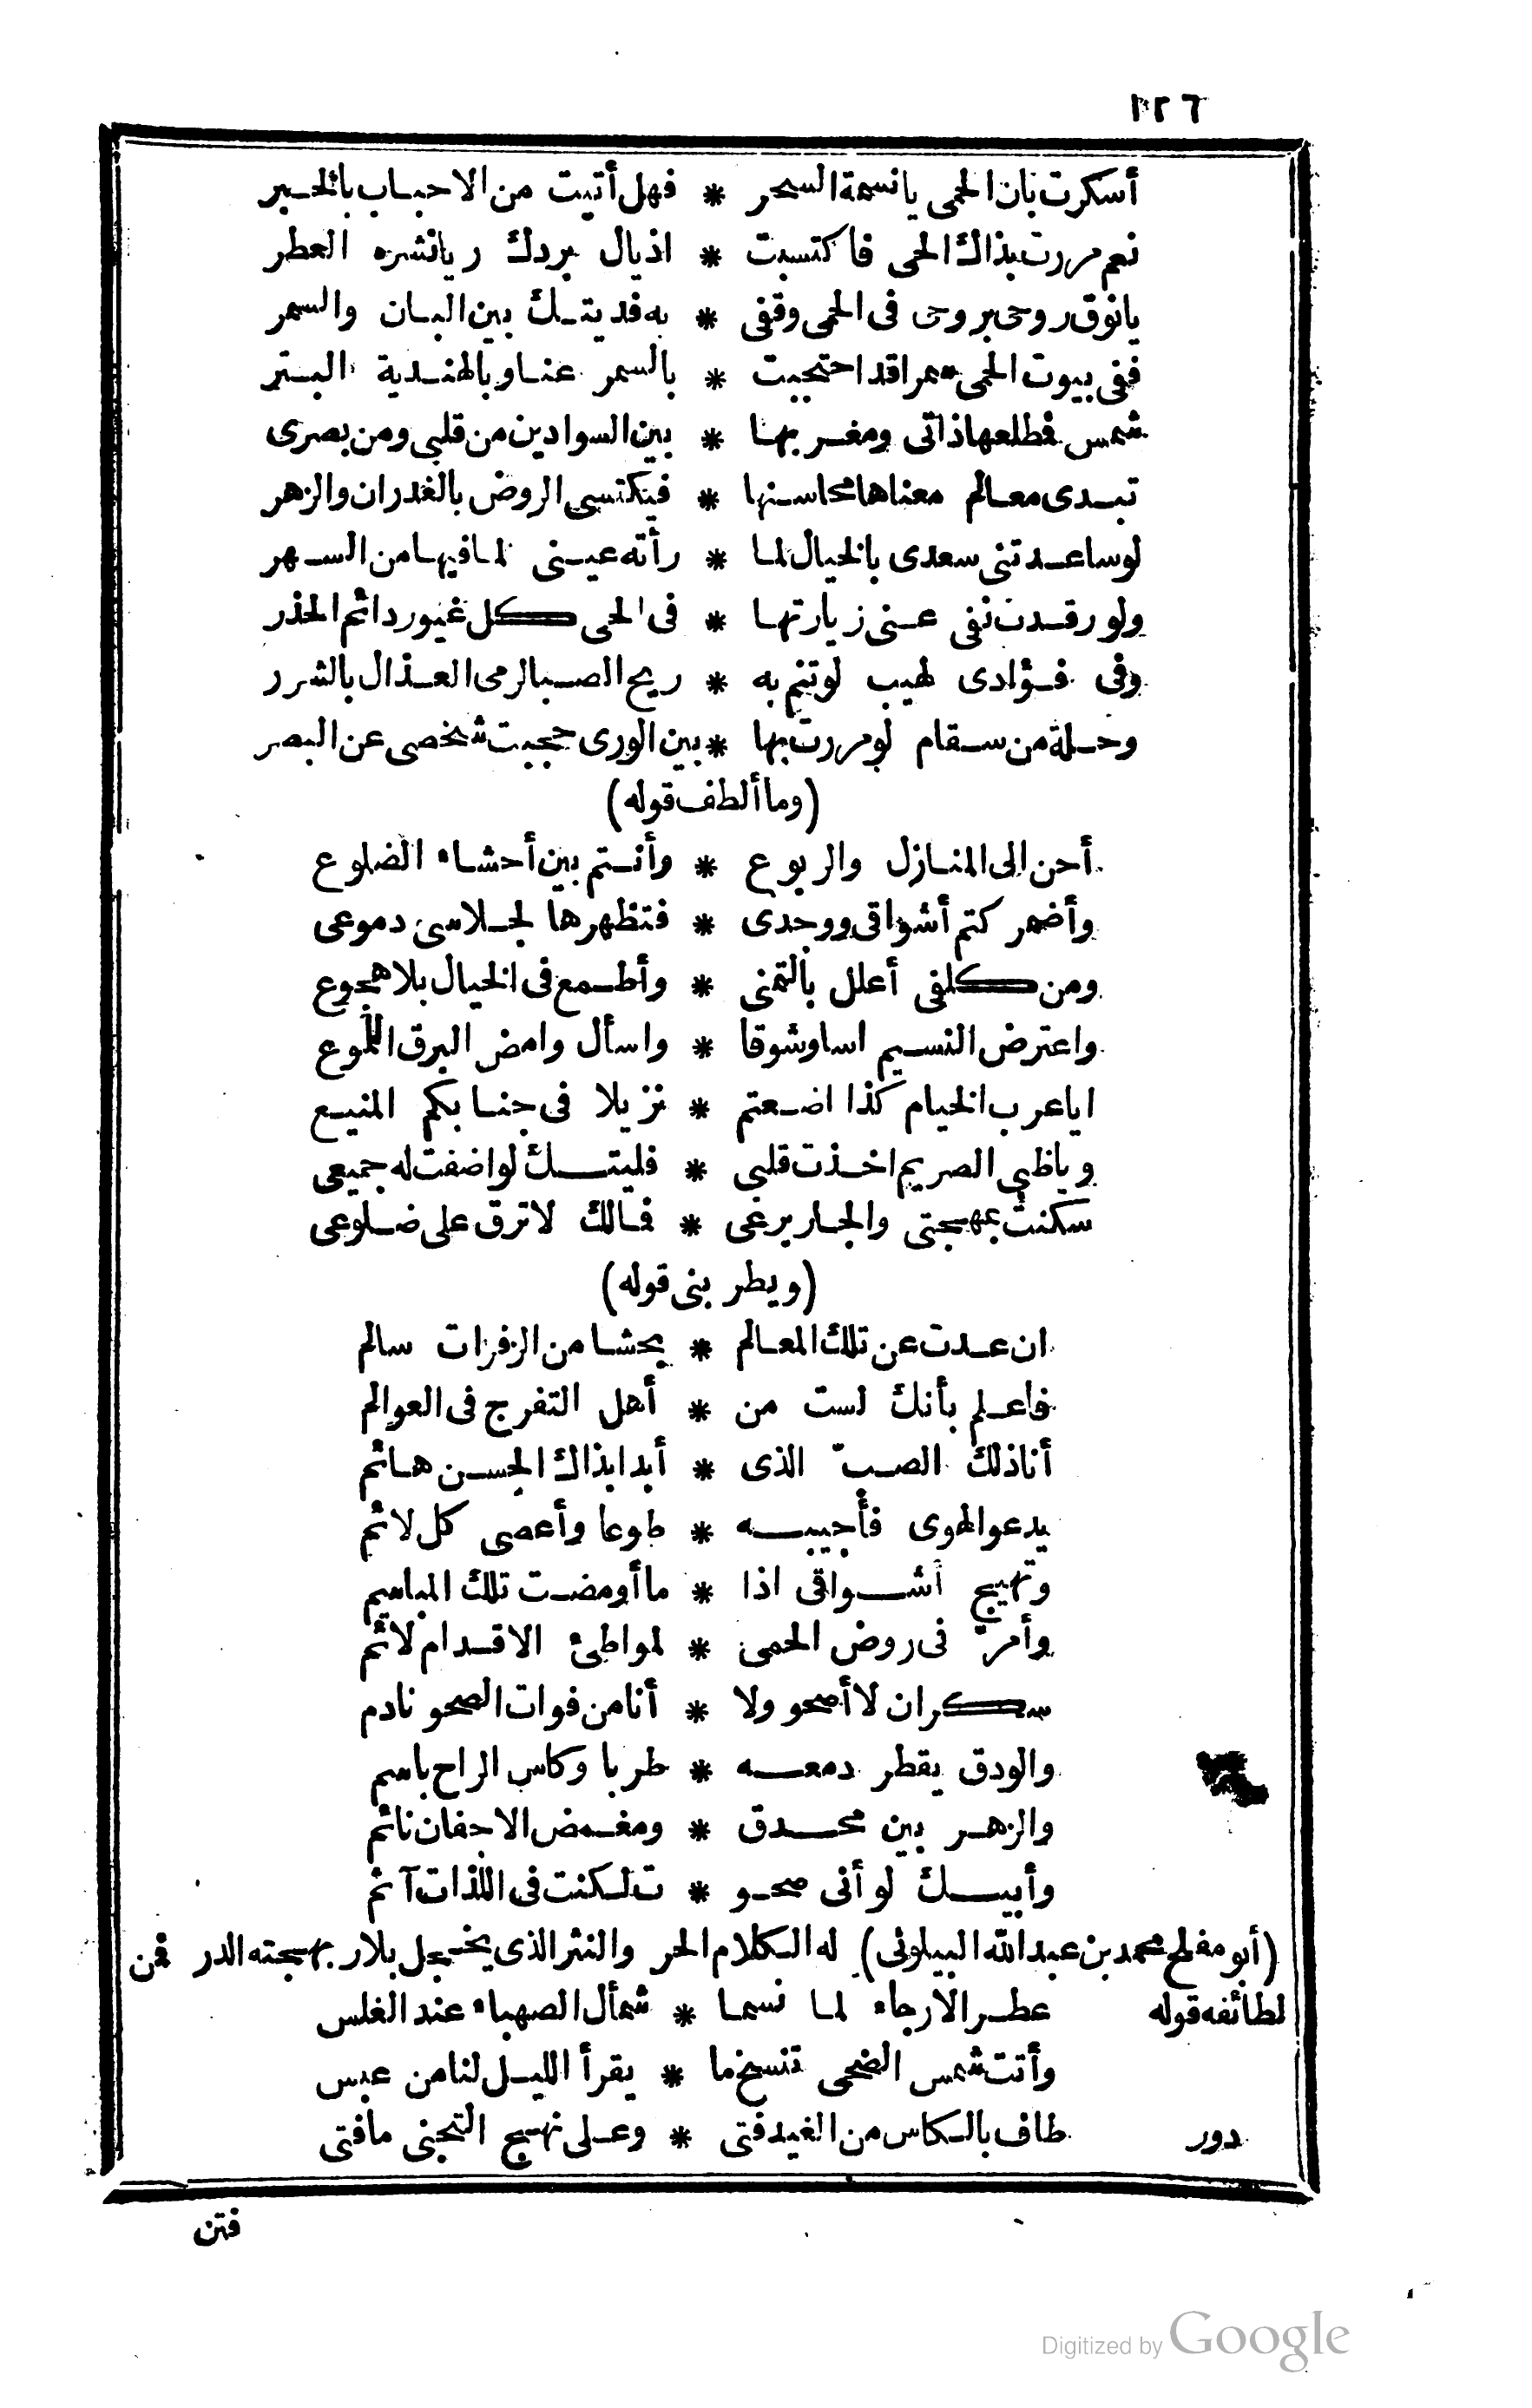 ١٢٦
أسكرت بان الحمى يا نسمة السحر * فهل أتيت من الاحباب بالخبر
نعم مررت بذاك الحى فاكتسبت * اذيال بردك ريانشره العطر
يانوق روحى بروحى فى الحمى وقفى * به فديتك بين البان والسمر
ففى بيوت الحمى سمرا قد احتجبت * بالسمر عنا وبالهندية البتر
شمس فطلعها ذاتى ومغربها * بين السوادين من قلبى ومن بصرى
تبدى معالم معناها محاسنها * فيكتسى الروض بالغدران والزهر
لو ساعدتنى سعدى بالخيال لما * رأته عينى لما فيها من السهر
ولو رقدت نفى عنى زيارتها * فى الحى كل غيور دائم الحذر
وفى فؤادى لهيب لو تنم به * ريح الصبا لرمى العذال بالشرر
وحلة من سقام لو مررت بها * بين الورى حجبت شخصى عن البصر
(وما ألطف قوله)
أحن الى المنازل والربوع * وأنتم بين أحشاء الضلوع
وأضمر كتم أشواقى ووجدى * فتظهرها لجلاسى دموعى
ومن كلفى أعلل بالتمنى * وأطمع فى الخيال بلا هجوع
واعترض النسيم اسا وشوقا * واسأل وامض البرق اللموع
ايا عرب الخيام كذا اضعتم * نزيلا فى جنابكم المنيع
وياظبى الصريم اخذت قلبى * فليتك لو اضفت له جميعى
سكنت بمهجتى والجار يرعى * فمالك لا ترق على ضلوعى
(ويطربنى قوله)
ان عدت عن تلك المعالم * بحشا من الزفرات سالم
فاعلم بأنك لست من * أهل التفرج فى العوالم
أنا ذلك الصبّ الذى * أبدا بذاك الحسن هائم
يدعو الهوى فأجيبه * طوعا وأعصى كل لائم
وتهيج أشواقى اذا * ما أومضت تلك المباسم
وأمرّ فى روض الحمى * لمواطئ الاقدام لاثم
سكران لا أصحو ولا * أنا من فوات الصحو نادم
والودق يقطر دمعه * طربا وكاس الراح باسم
والزهر بين محدق * ومغمض الاجفان نائم
وأبيك لو أنى صحو * ت لكنت فى اللذات آثم
(أبو مفلح محمد بن عبد الله البيلونى) له الكلام الحر والنثر الذى يخجل بلار بهجته الدر فمن
لطائفه قوله عطر الارجاء لما نسما * شمأل الصهباء عند الغلس
وأتت شمس الضحى تنسخ ما * يقرأ الليل لنا من عبس
دور طاف بالكاس من الغيد فتى * وعلى نهج التجنى ما فتى
فتن
Digitized by Google